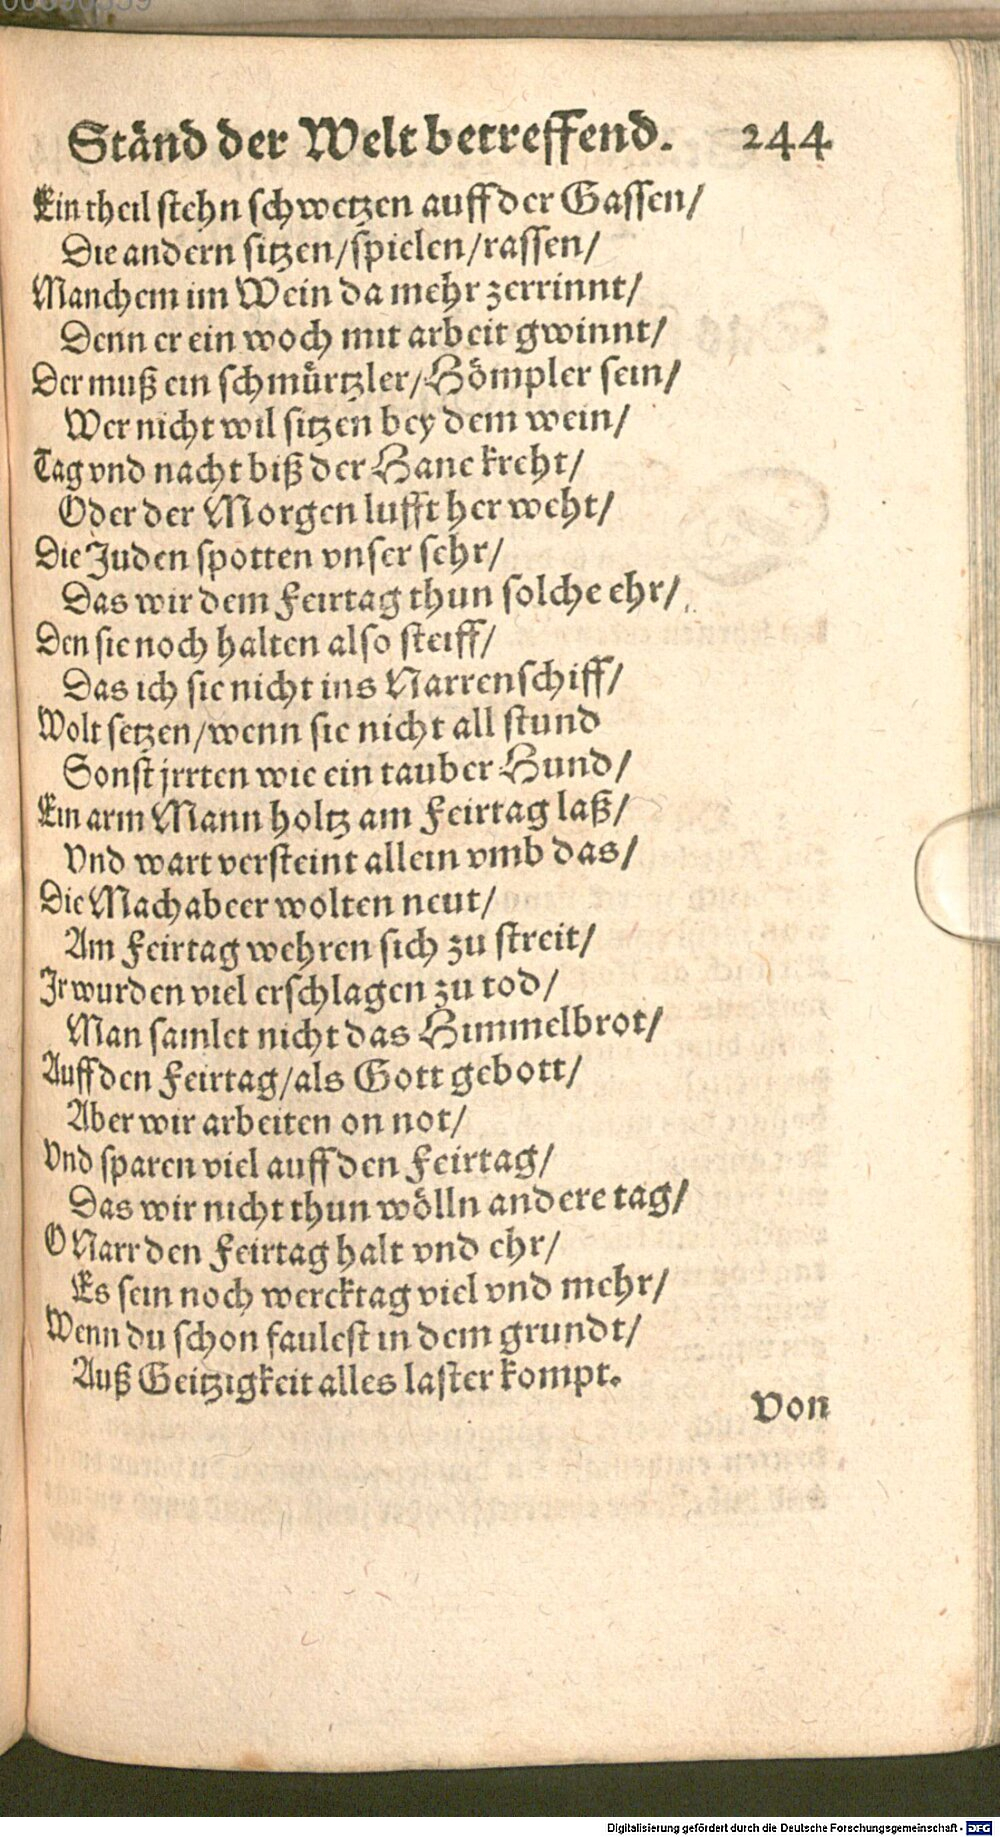 Ständ der Welt betreffend. 244
Ein theil stehn schwetzen auff der Gassen/
Die andern sitzen/spielen/rassen/
Manchem im Wein da mehr zerrinnt/
Denn er ein woch mit arbeit gwinnt/
Der muß ein schmürtzler/Hömpler sein/
Wer nicht wil sitzen bey dem wein/
Tag vnd nacht biß der Hane kreht/
Oder der Morgen lufft her weht/
Die Juden spotten vnser sehr/
Das wir dem Feirtag thun solche ehr/
Den sie noch halten also steiff/
Das ich sie nicht ins Narrenschiff/
Wolt setzen/wenn sie nicht all stund
Sonst jrrten wie ein tauber Hund/
Ein arm Mann holtz am Feirtag laß/
Vnd wart versteint allein vmb das/
Die Machabeer wolten neut/
Am Feirtag wehren sich zu streit/
Jr wurden viel erschlagen zu tod/
Man samlet nicht das Himmelbrot/
Auff den Feirtag/als Gott gebott/
Aber wir arbeiten on not/
Vnd sparen viel auff den Feirtag/
Das wir nicht thun wölln andere tag/
O Narr den Feirtag halt vnd ehr/
Es sein noch wercktag viel vnd mehr/
Wenn du schon faulest in dem grundt/
Auß Geitzigkeit alles laster kompt.
Von
Digitalisierung gefördert durch die Deutsche Forschungsgemeinschaft - DFG